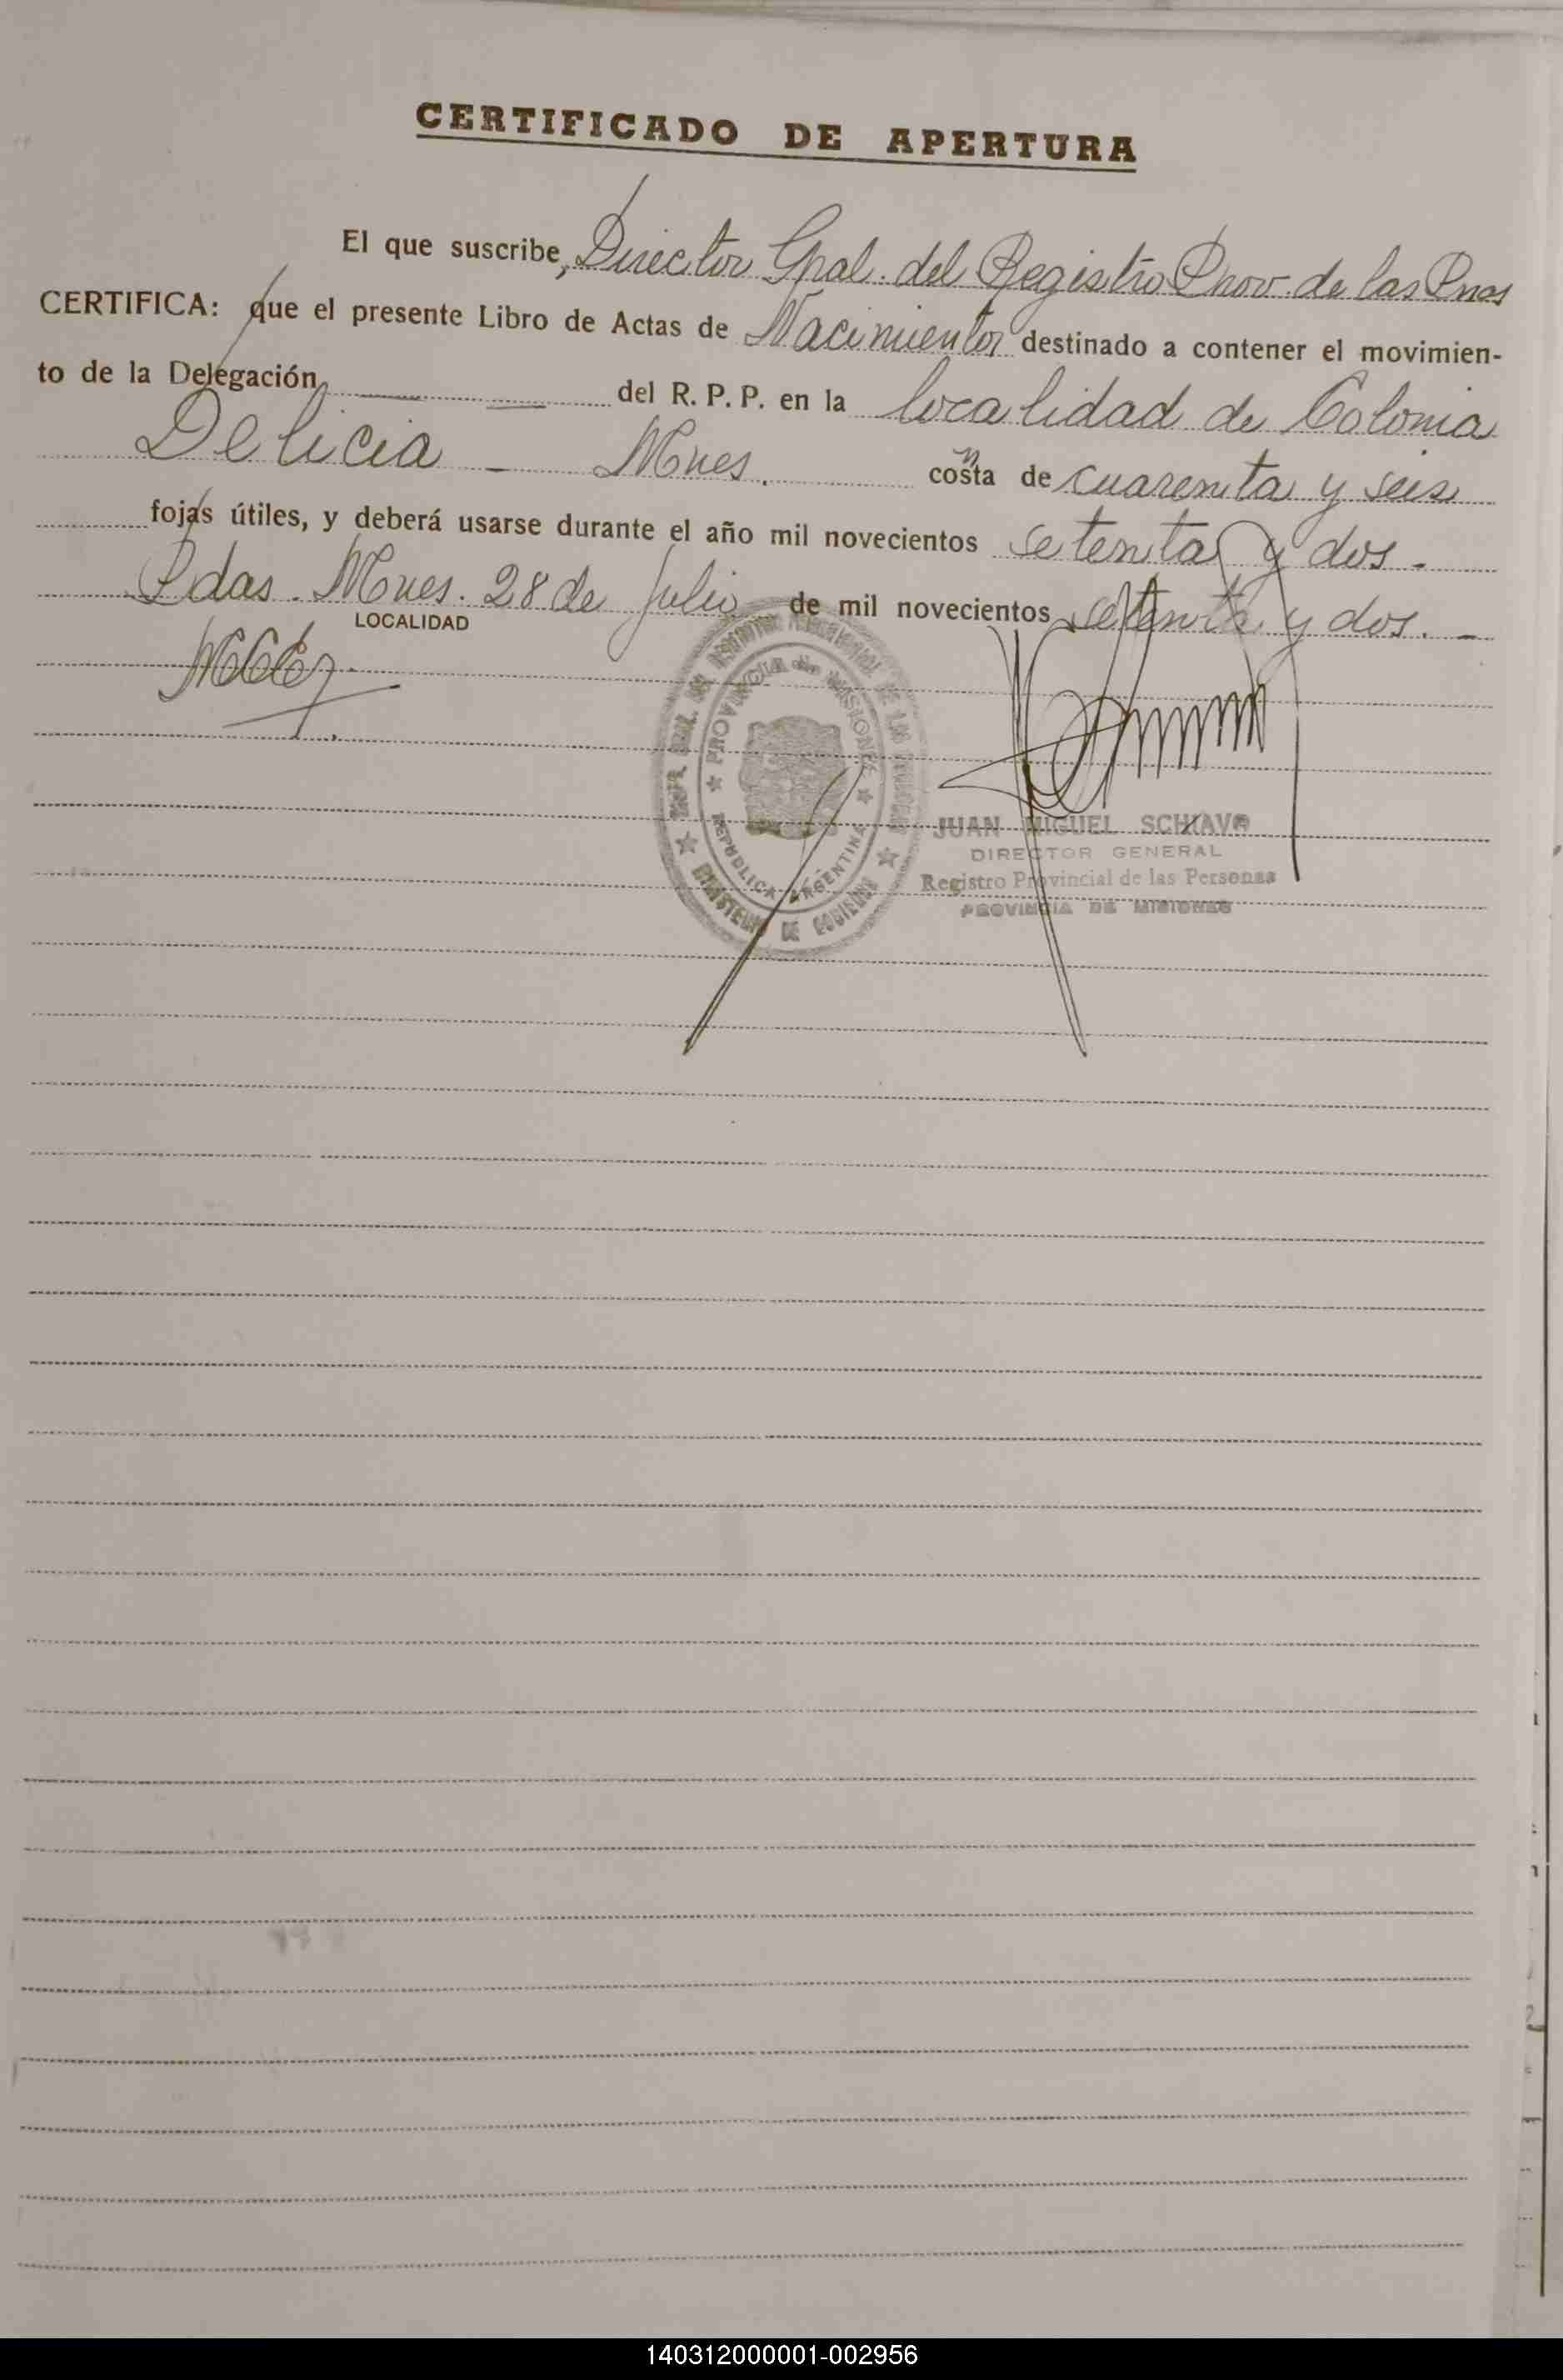 CERTIFICADO DE APERTURA
El que suscribe, Director Gral. del Registro Prov. de las Pnas
CERTIFICA: que el presente Libro de Actas de Nacimientos destinado a contener el movimien-
to de la Delegación del R. P. P. en la localidad de Colonia
Delicia - Mnes. costa de cuarenta y seis
n
fojas útiles, y deberá usarse durante el año mil novecientos setenta y dos.
Pdas. Mnes. 28 de Julio de mil novecientos setenta y dos. -
LOCALIDAD
PROVINCIA de MISIONES
REPUBLICA ARGENTINA
MINISTERIO DE GOBIERNO
JUAN MIGUEL SCHIAVO
DIRECTOR GENERAL
Registro Provincial de las Personas
PROVINCIA DE MISIONES
140312000001-002956